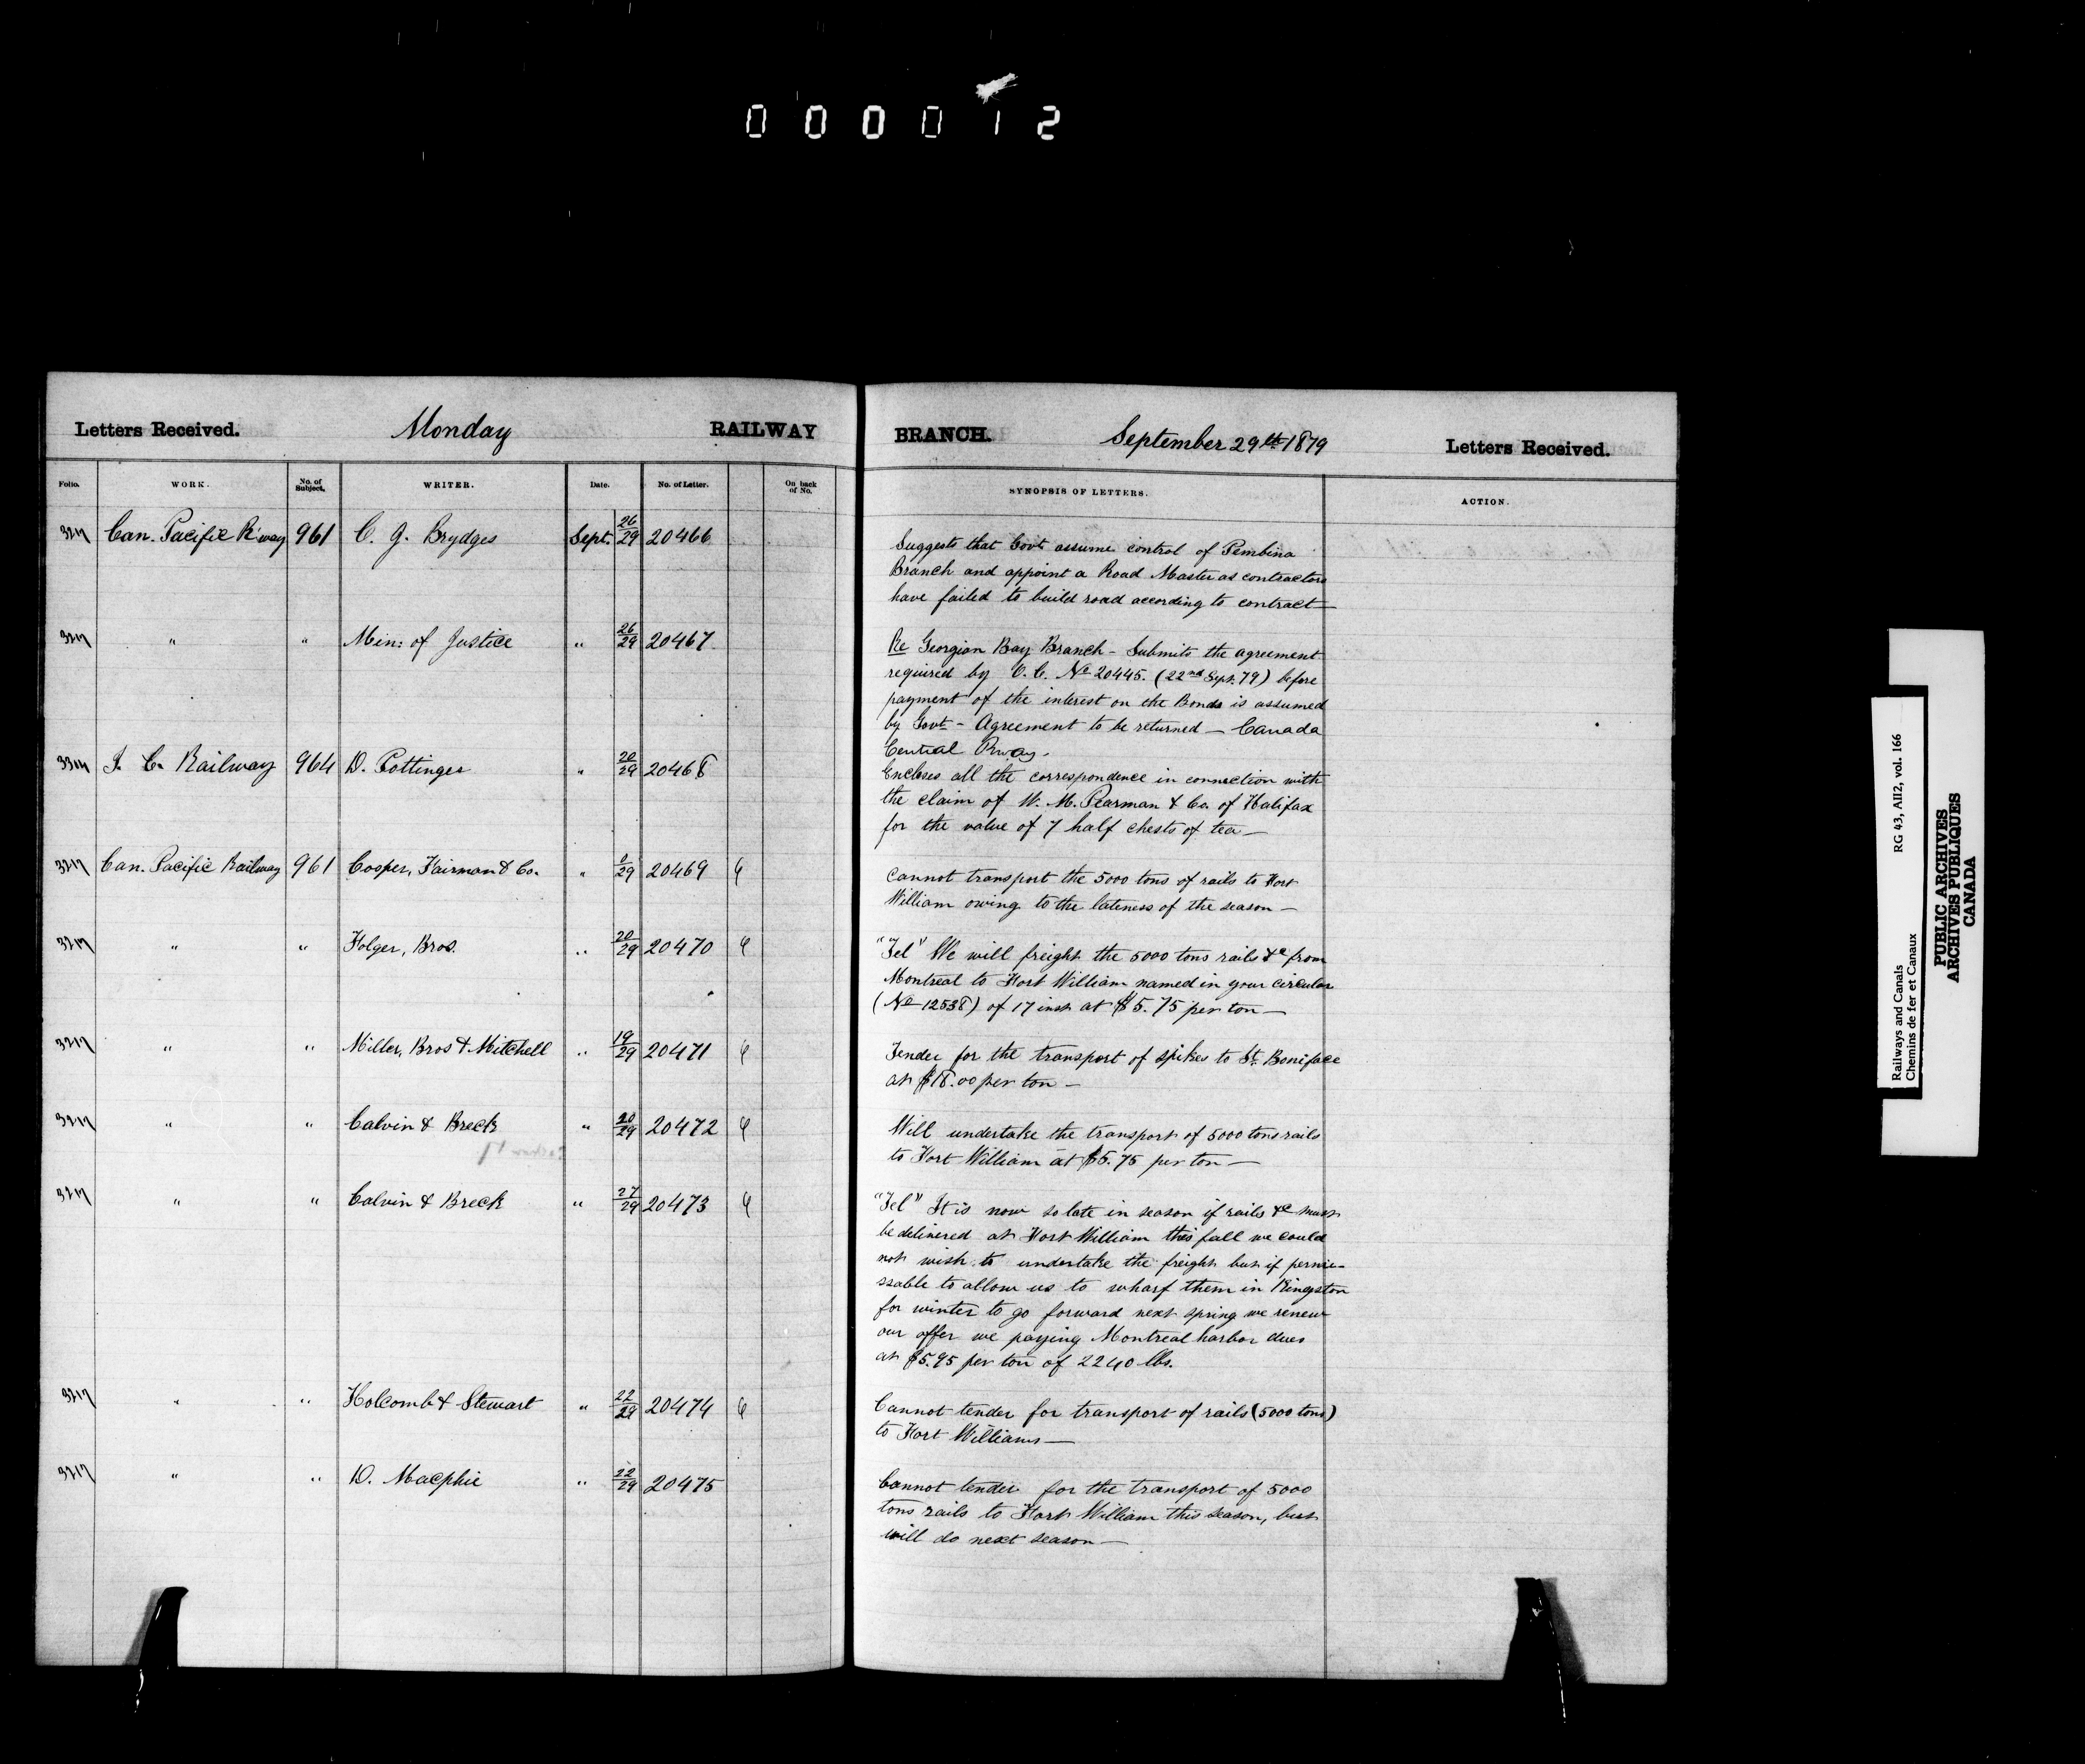 000012
Letters Received. Monday RAILWAY BRANCH. September 29th 1879 Letters Received.
Folio. WORK. No. of Subject. WRITER. Date. No. of Letter. On back of No. SYNOPSIS OF LETTERS. ACTION.
3217 Can. Pacific R'way 961 C. J. Brydges Sept. 26/29 20466
Suggests that Govt assume control of Pembina
Branch and appoint a Road Master as contractors
have failed to build road according to contract—
3217 " " Min: of Justice " 26/29 20467
Re Georgian Bay Branch - Submits the agreement
required by O.C. No 20445. (22nd Sept. 79) before
payment of the interest on the Bonds is assumed
by Govt - Agreement to be returned — Canada
Central Rway.
I. C. Railway 964 D. Pottinger " 20/29 20468
Encloses all the correspondence in connection with
the claim of W. M. Pearman & Co. of Halifax
for the value of 7 half chests of tea —
3217 Can. Pacific Railway 961 Cooper, Fairman & Co. " /29 20469
Cannot transport the 5000 tons of rails to Fort
William owing to the lateness of the season —
3217 " " Folger, Bros. " 20/29 20470
"Tel" We will freight the 5000 tons rails &c from
Montreal to Fort William named in your circular
(No 12538) of 17 inst at $5.75 per ton —
3217 " " Miller, Bros & Mitchell " 19/29 20471
Tender for the transport of spikes to St. Boniface
at $18.00 per ton —
3217 " " Calvin & Breck " 20/29 20472
Will undertake the transport of 5000 tons rails
to Fort William at $5.75 per ton —
3217 " " Calvin & Breck " 27/29 20473
"Tel" It is now so late in season if rails &c must
be delivered at Fort William this fall we could
not wish to undertake the freight but if permis-
sable to allow us to wharf them in Kingston
for winter to go forward next spring we renew
our offer we paying Montreal harbor dues
at $5.95 per ton of 2240 lbs.
3217 " " Holcomb & Stewart " 22/29 20474
Cannot tender for transport of rails (5000 tons)
to Fort Williams —
3217 " " D. Macphie " 22/29 20475
Cannot tender for the transport of 5000
tons rails to Fort William this season, but
will do next season —
Railways and Canals RG 43, AII2, vol. 166
Chemins de fer et Canaux
PUBLIC ARCHIVES
ARCHIVES PUBLIQUES
CANADA